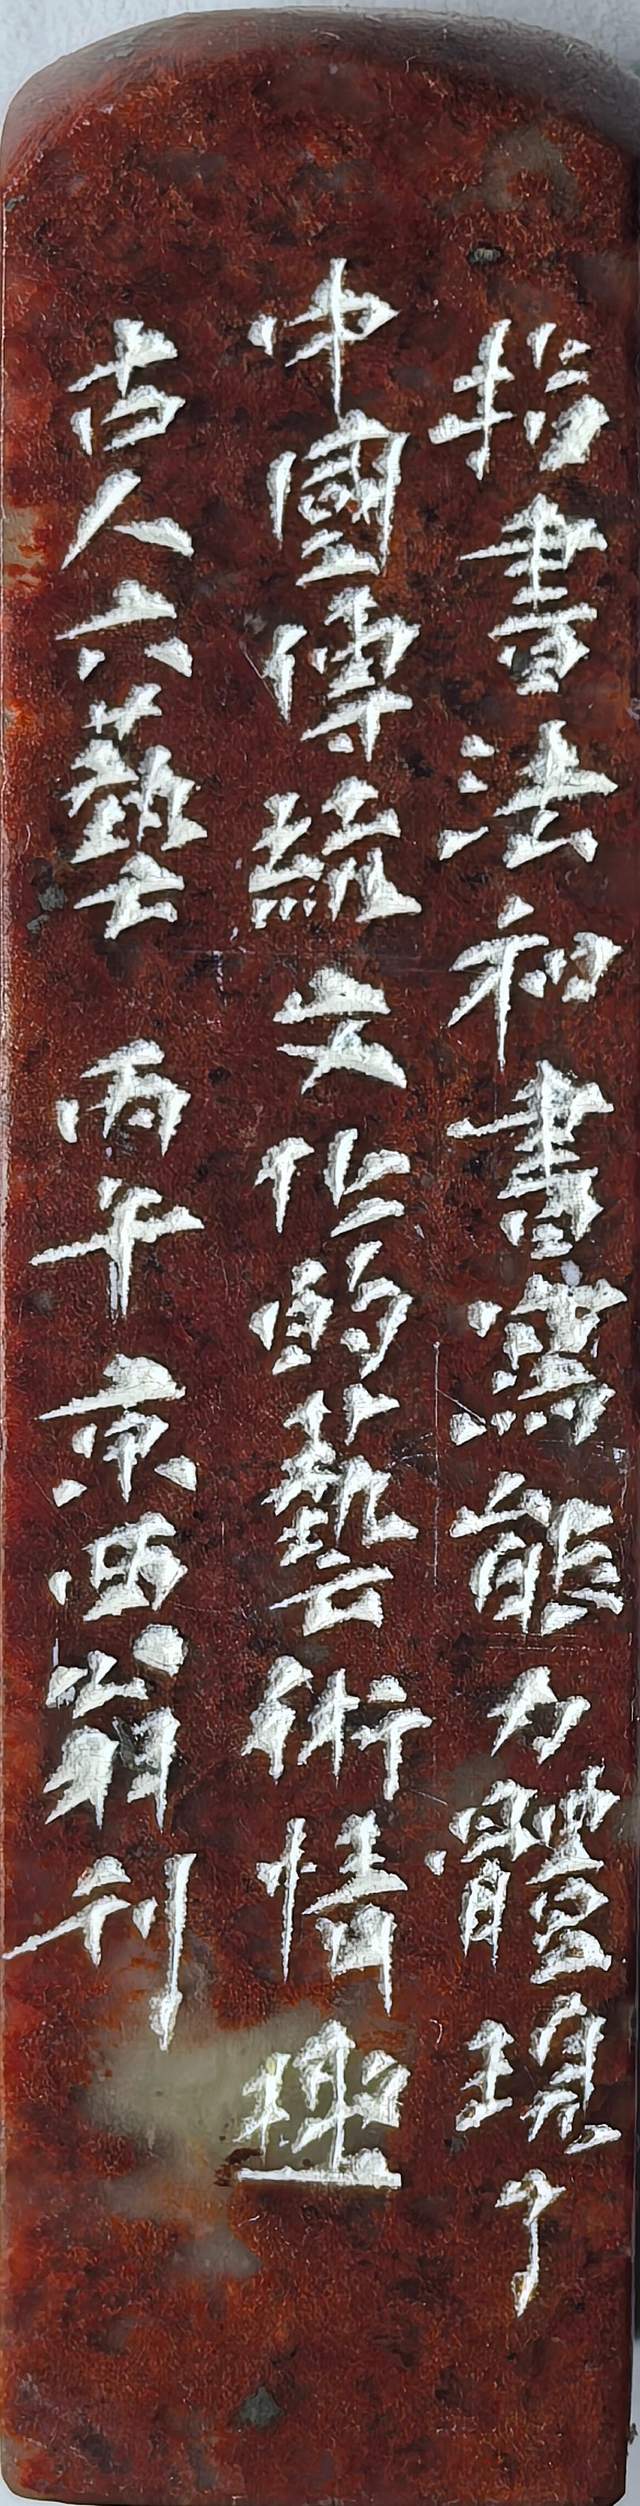 指書法和書寫能力體現了
中國傳統文化的藝術情理
古人六藝 丙午京西翁刊